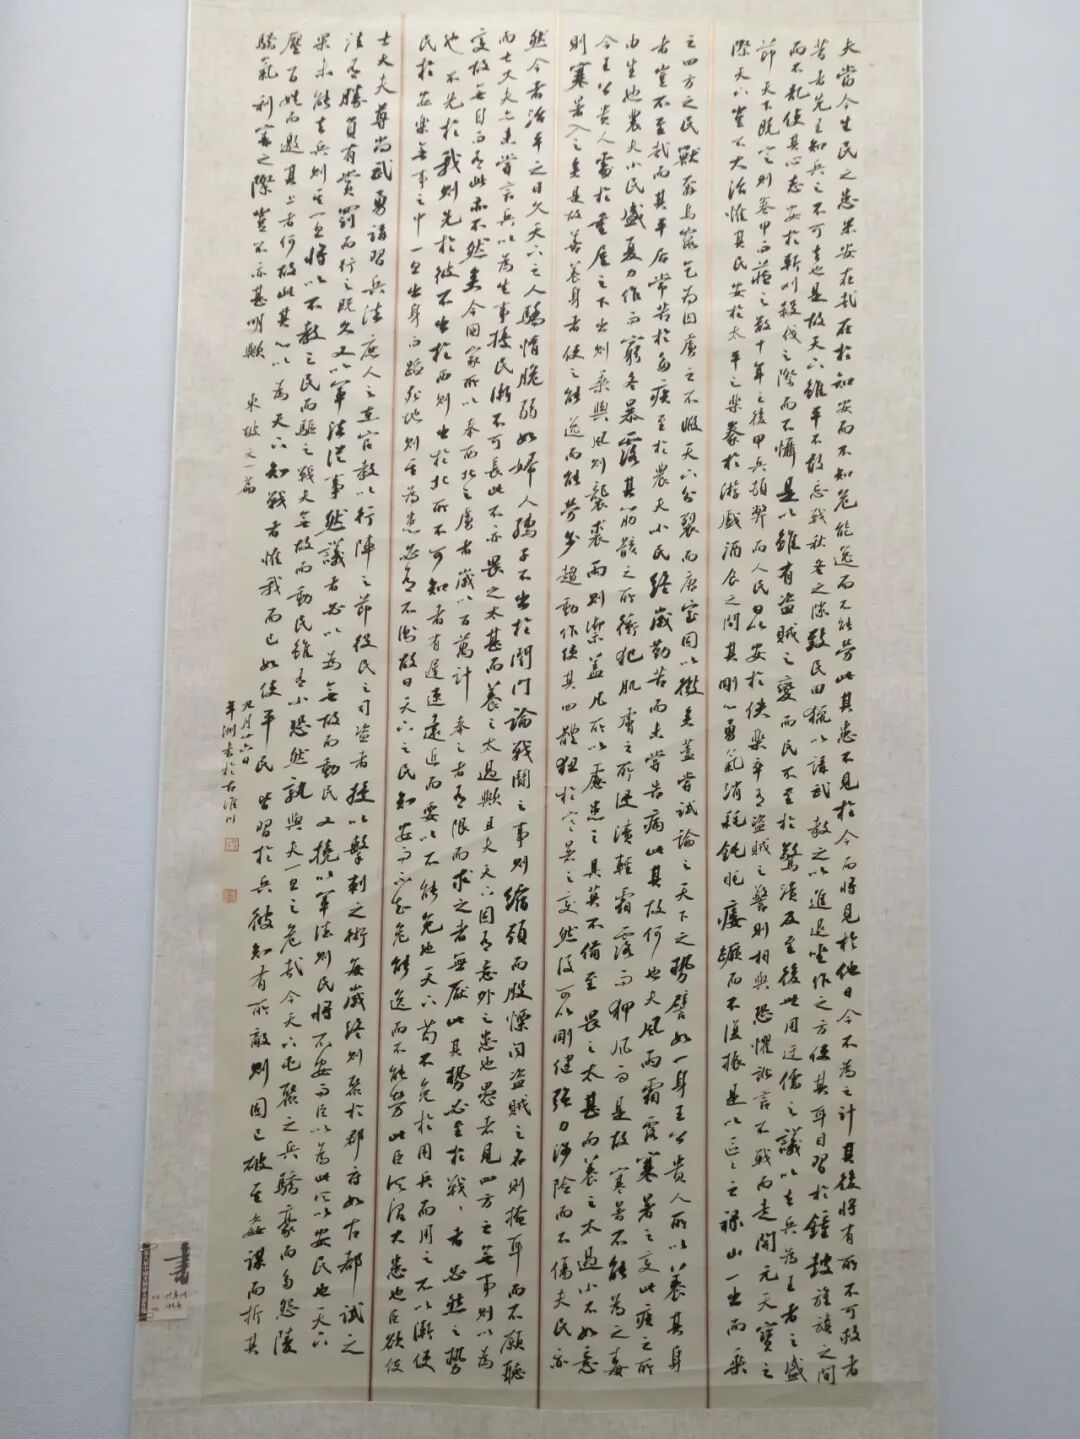 夫當今生民之患果安在哉在於知安而不知危能逸而不能勞此其患不見於今而將見於他日今不為之計其後將有所不可救者
昔者先王知兵之不可去也是故天下雖平不敢忘戰秋冬之隙致民田獵以講武教之以進退坐作之方使其耳目習於鍾鼓旌旗之間
而不亂使其心志安於斬刈殺伐之際而不懾是以雖有盜賊之變而民不至於驚潰及至後世用迂儒之議以去兵為王者之盛
節天下既定則卷甲而藏之數十年之後甲兵頓弊而人民日以安於佚樂卒有盜賊之警則相與恐懼訛言不戰而走開元天寶之
際天下豈不大治惟其民安於太平之樂豢於游戲酒食之間其剛心勇氣消耗鈍眊痿蹶而不復振是以區々之祿山一出而乘
之四方之民獸奔鳥竄乞為囚虜之不暇天下分裂而唐室固以微矣蓋嘗試論之天下之勢譬如一身王公貴人所以養其身
者豈不至哉而其平居常苦於多疾至於農夫小民終歲勤苦而未嘗告病此其故何也夫風雨霜露寒暑之變此疾之所
由生也農夫小民盛夏力作而窮冬暴露其筋骸之所衝犯肌膚之所浸漬輕霜露而狎風雨是故寒暑不能為之毒
今王公貴人處於重屋之下出則乘輿風則襲裘雨則御蓋凡所以慮患之具莫不備至畏之太甚而養之太過小不如意
則寒暑入之矣是故善養身者使之能逸而能勞步趨動作使其四體狃於寒暑之變然後可以剛健強力涉險而不傷夫民亦
然今者治平之日久天下之人驕惰脆弱如婦人孺子不出於閨門論戰鬭之事則縮頸而股慄聞盜賊之名則掩耳而不願聽
而士大夫亦未嘗言兵以為生事擾民漸不可長此不亦畏之太甚而養之太過歟且夫天下固有意外之患也愚者見四方之無事則以為
變故無自而有此亦不然矣今國家所以奉西北之虜者歲以百萬計奉之者有限而求之者無厭此其勢必至於戰、者必然之勢
也不先於我則先於彼不出於西則出於北所不可知者有遲速遠近而要以不能免也天下苟不免於用兵而用之不以漸使
民於安樂無事之中一旦出身而蹈死地則其為患必有不測故曰天下之民知安而不知危能逸而不能勞此臣所謂大患也臣欲使
士大夫尊尚武勇講習兵法庶人之在官教以行陣之節役民之司盜者授以擊刺之術每歲終則聚於郡府如古都試之
法有勝負有賞罰而行之既久又以軍法從事然議者必以為無故而動民又撓以軍法則民將不安而臣以為此所以安民也天下
果未能去兵則其一旦將以不教之民而驅之戰夫無故而動民雖有小恐然孰與夫一旦之危哉今天下屯聚之兵驕豪而多怨陵
壓百姓而邀其上者何故此其心以為天下知戰者惟我而已如使平民皆習於兵彼知有所敵則固已破其姦謀而折其
驕氣利害之際豈不亦甚明歟 東坡文一篇
九月廿六日
年洲書於古淮川